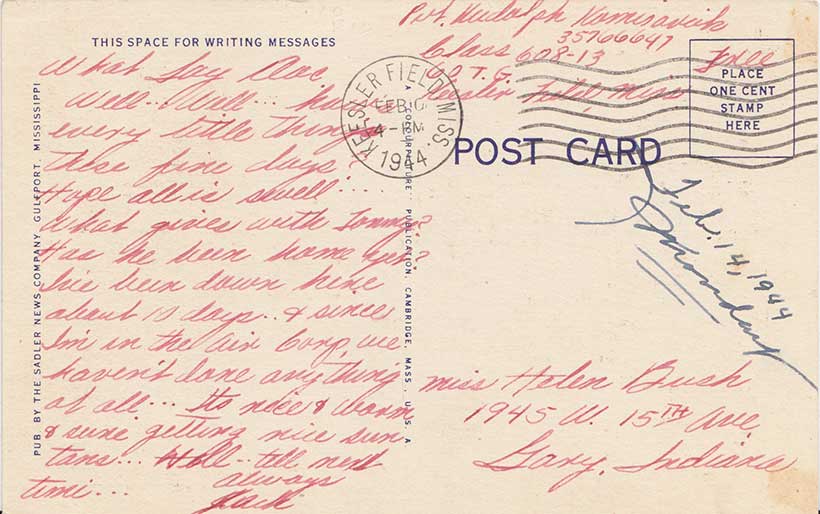 THIS SPACE FOR WRITING MESSAGES
What Say Doc
Well.. Well... how
every little thing
these fine days?
Hope all is swell...
What gives with Tommy?
Has he been home yet?
I've been down here
about 10 days.. & since
I'm in the Air Corp, we
haven't done anything
at all... Its nice & warm
& sure getting nice sun
tans... Well - till next
time...
always
Jack
PUB. BY THE SADLER NEWS COMPANY, GULFPORT, MISSISSIPPI
A COLOURPICTURE PUBLICATION, CAMBRIDGE, MASS., U.S.A
Pvt. Rudolph
35766647
Class 608-13
B.T.C.
Keesler Field Miss
Free
KEESLER FIELD, MISS.
FEB 10
4-PM
1944
PLACE
ONE CENT
STAMP
HERE
POST CARD
Feb. 14, 1944
Monday
Miss Helen Bush
1945 W. 15TH Ave
Gary, Indiana